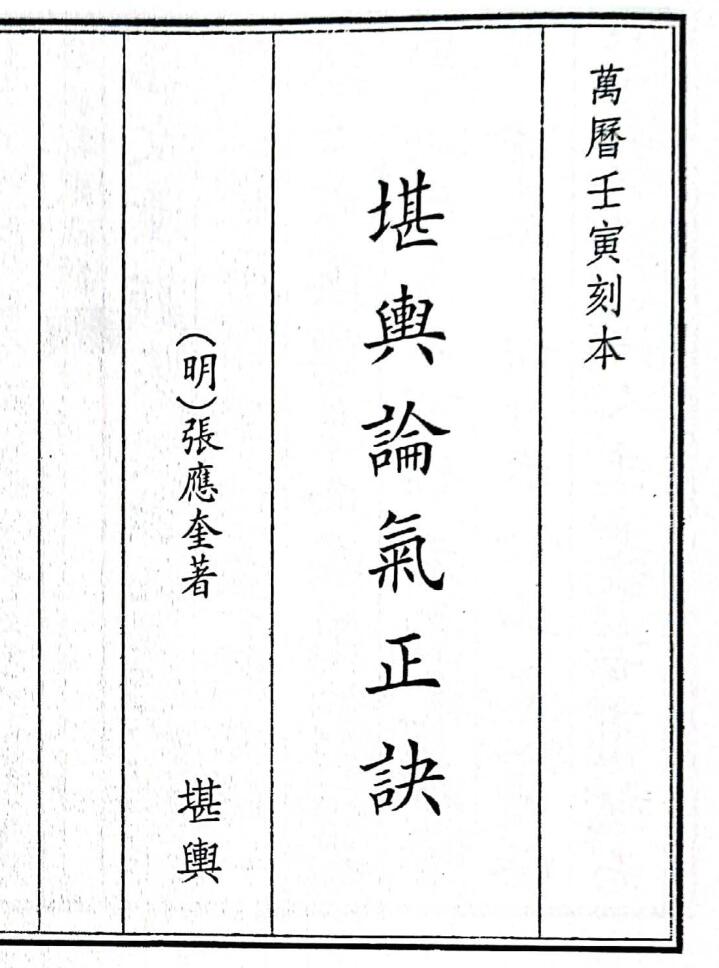 萬曆壬寅刻本
堪輿論氣正訣
（明）張應奎著
堪輿